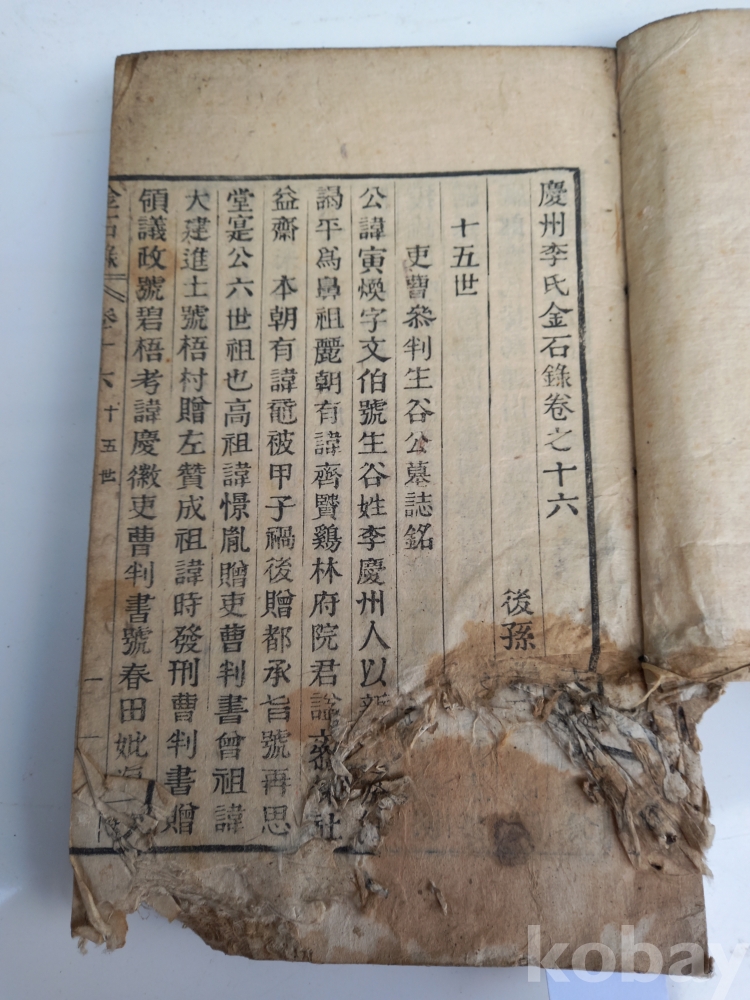 慶州李氏金石錄卷之十六
後孫
十五世
吏曹叅判生谷公墓誌銘
公諱寅煥字文伯號生谷姓李慶州人以新
謁平爲鼻祖麗朝有諱齊賢鷄林府院君諡社
益齋 本朝有諱黿被甲子禍後贈都承旨號再思
堂寔公六世祖也高祖諱憬胤贈吏曹判書曾祖諱
大建進士號梧村贈左贊成祖諱時發刑曹判書贈
領議政號碧梧考諱慶徽吏曹判書號春田妣
金石錄 卷十六 十五世 一
kobay